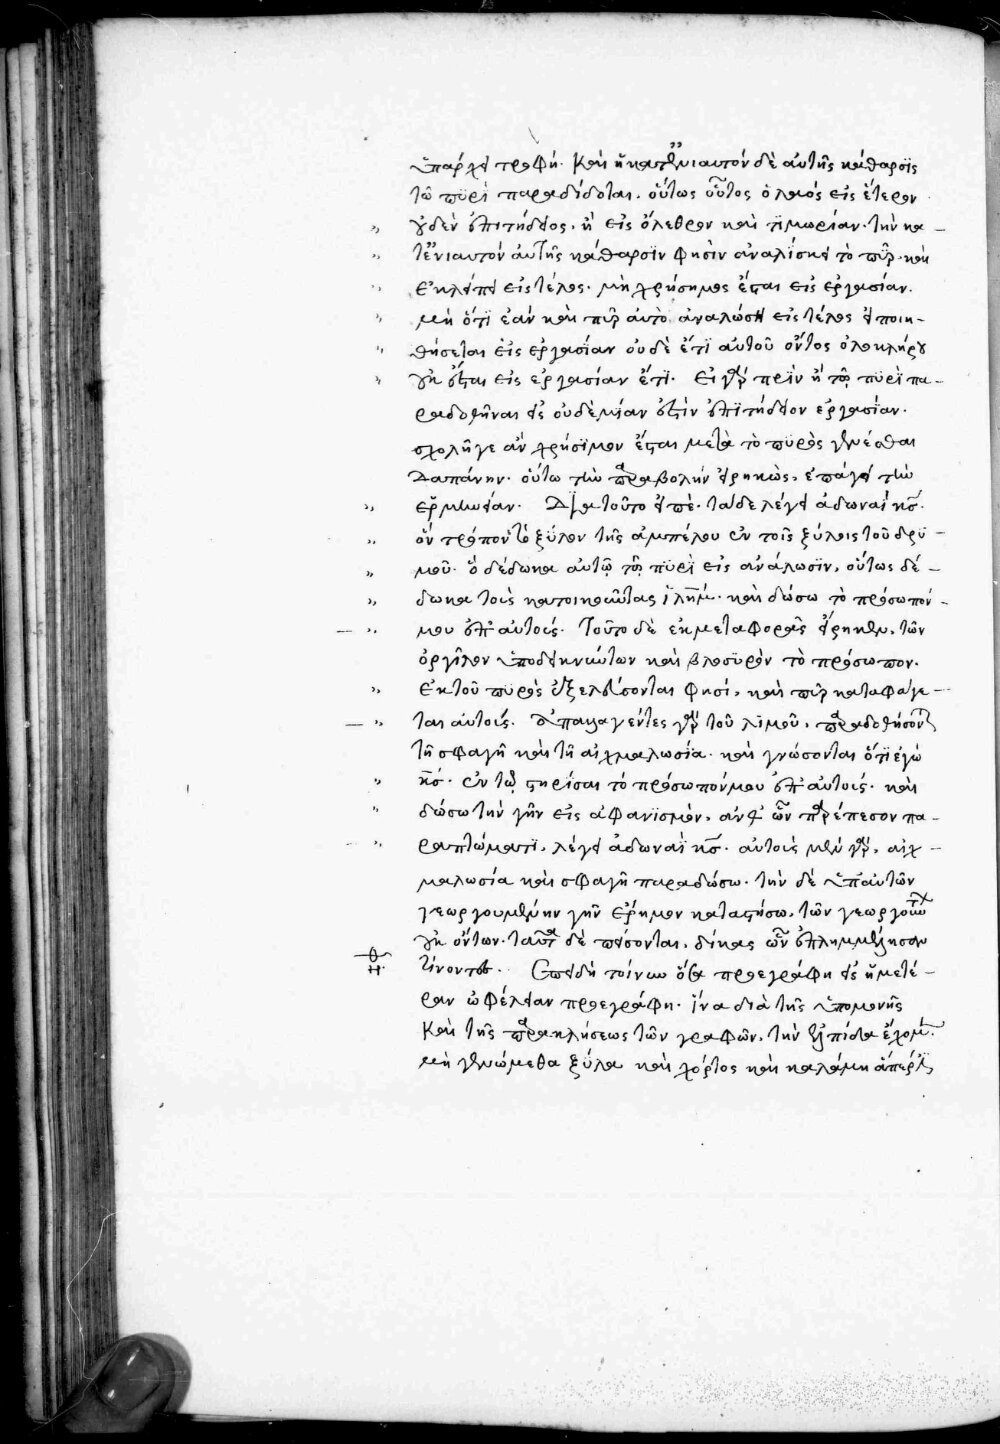 ὑπάρχει τροφή. Καὶ ἡ κατ' ἐνιαυτὸν δὲ αὐτῆς κάθαρσϊς
τῶ πυρὶ παραδίδοται. οὕτως οὗτος ὁ λαός εἰς ἕτερον
οὐδὲν ἐπιτήδειος, ἢ εἰς ὄλεθρον καὶ τιμωρίαν. τὴν κα–
τ' ἐνιαυτὸν αὐτῆς κάθαρσϊν φησὶν ἀναλίσκει τὸ πῦρ. καὶ
ἐκλείπει εἰς τέλος. μὴ χρήσιμος ἔσται εἰς ἐργασίαν.
μὴ ὅτϊ ἐὰν καὶ πῦρ αὐτὸ ἀναλώση εἰς τέλος εἰ ποιη–
θήσεται εἰς ἐργασίαν οὐδὲ ἔτϊ αὐτοῦ ὄντος ὁλοκλήρου
οὐκ ἔσται εἰς ἐργασίαν ἔτϊ. Εἰ γὰρ πρὶν ἢ τῶ πυρὶ πα–
ραδοθῆναι εἰς οὐδεμίαν ἐστὶν ἐπϊτήδειον ἐργασίαν.
σχολῆγε ἂν χρήσϊμον ἔσται μετὰ τὸ πυρὸς γενέσθαι
δαπάνην. οὕτω τὴν παραβολὴν εἰρηκὼς, ἐπάγει τὴν
” ἑρμηνείαν. Διατοῦτο εἰπὲ. τάδε λέγει ἀδωναῒ κς.
” ὃν τρόπον τὸ ξύλον τῆς ἀμπέλου ἐν τοῖς ξύλοις τοῦ δρυ–
” μοῦ. ὃ δέδωκα αὐτῶ τῶ πυρὶ εἰς ἀνάλωσϊν, οὕτως δέ–
” δωκα τοὺς κατοικοῦντας ἰλημ. καὶ δώσω τὸ πρόσωπόν–
” μου ἐπ' αὐτούς. Τοῦτο δὲ ἐκ μεταφορᾶς εἴρηκεν, τῶν
ὀργίλον ὑποδεικνύντων καὶ βλοσυρὸν τὸ πρόσωπον.
” Ἐκ τοῦ πυρὸς ἐξελεύσονται φησὶ, καὶ πῦρ καταφάγε–
” ται αὐτούς. ἀπαλλαγέντες γὰρ τοῦ λιμοῦ, παραδοθήσονται
τῆ σφαγῆ καὶ τῆ αἰχμαλωσία. καὶ γνώσονται ὅτϊ ἐγὼ
” κς. ἐν τῶ στηρίσαι τὸ πρόσωπόν μου ἐπ' αὐτούς. καὶ
” δώσω τὴν γῆν εἰς ἀφανϊσμὸν, ἀνθ' ὧν παρέπεσον πα–
” ραπτώματϊ, λέγει ἀδωναῒ κς. αὐτοὺς μὲν γὰρ, αἰχ–
μαλωσία καὶ σφαγῆ παραδώσω. τὴν δὲ ὑπ' αὐτῶν
γεωργουμένην γῆν ἔρημον καταστήσω, τῶν γεωργούντων
οὐκ ὄντων. ταῦτα δὲ πείσονται, δίκας ὧν ἐπλημμέλησαν
τίνοντες. Ἐπειδὴ τοίνυν ὅσα προεγράφη εἰς ἡμετέ–
ραν ὠφέλειαν προεγράφη. ἵνα διὰ τῆς ὑπομονῆς
Καὶ τῆς παρακλήσεως τῶν γραφῶν, τὴν ἐλπίδα ἔχομεν.
μὴ γενώμεθα ξύλα καὶ χόρτος καὶ καλάμη ἅπερ